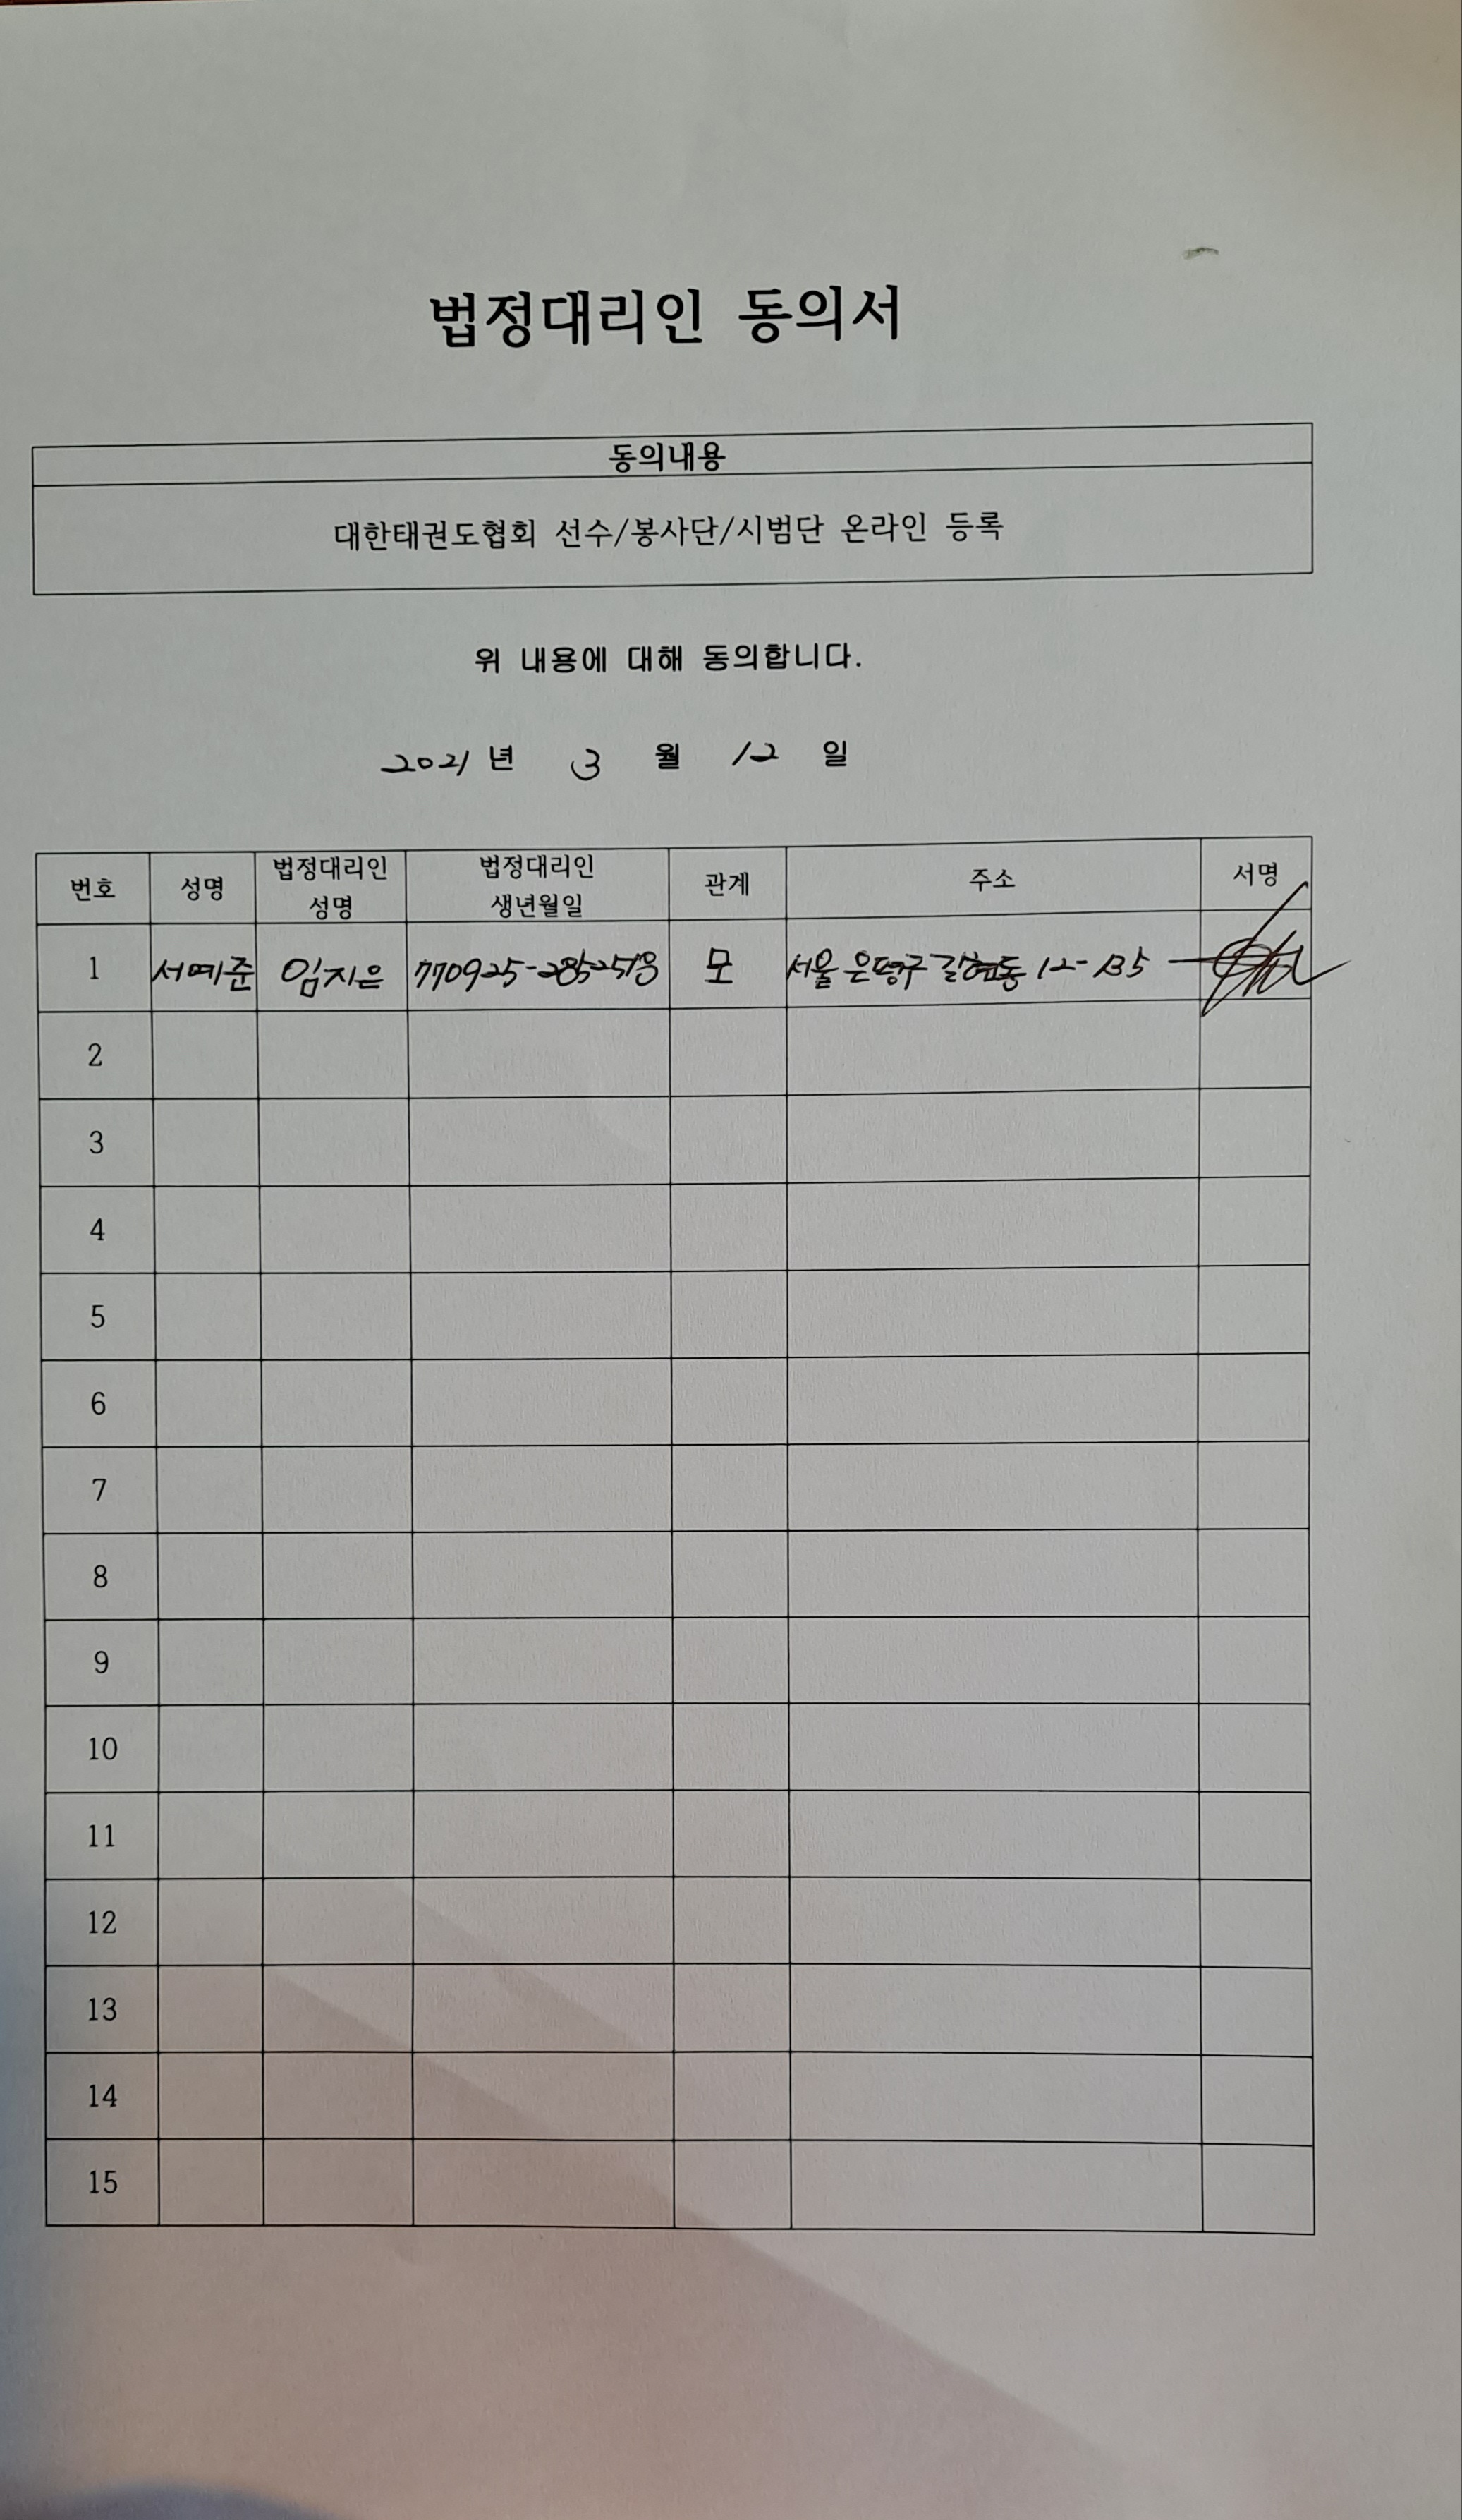 법정대리인 동의서
동의내용
대한태권도협회 선수/봉사단/시범단 온라인 등록
위 내용에 대해 동의합니다.
2021 년 3 월 12 일
번호 성명 법정대리인 성명 법정대리인 생년월일 관계 주소 서명
1 서예준 임지은 770925-2852518 모 서울 은평구 갈현동 12-135
2
3
4
5
6
7
8
9
10
11
12
13
14
15